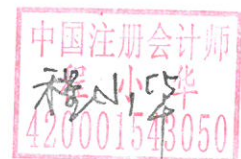 中国注册会计师
程小华
420001543050